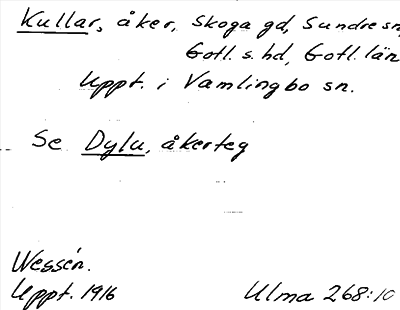 Kullar, åker, Skoga gd, Sundre sn,
Gotl. s. hd, Gotl. län
Uppt. i Vamlingbo sn.
Se Dylu, åkerteg
Wessén.
Uppt. 1916 Ulma 268:10